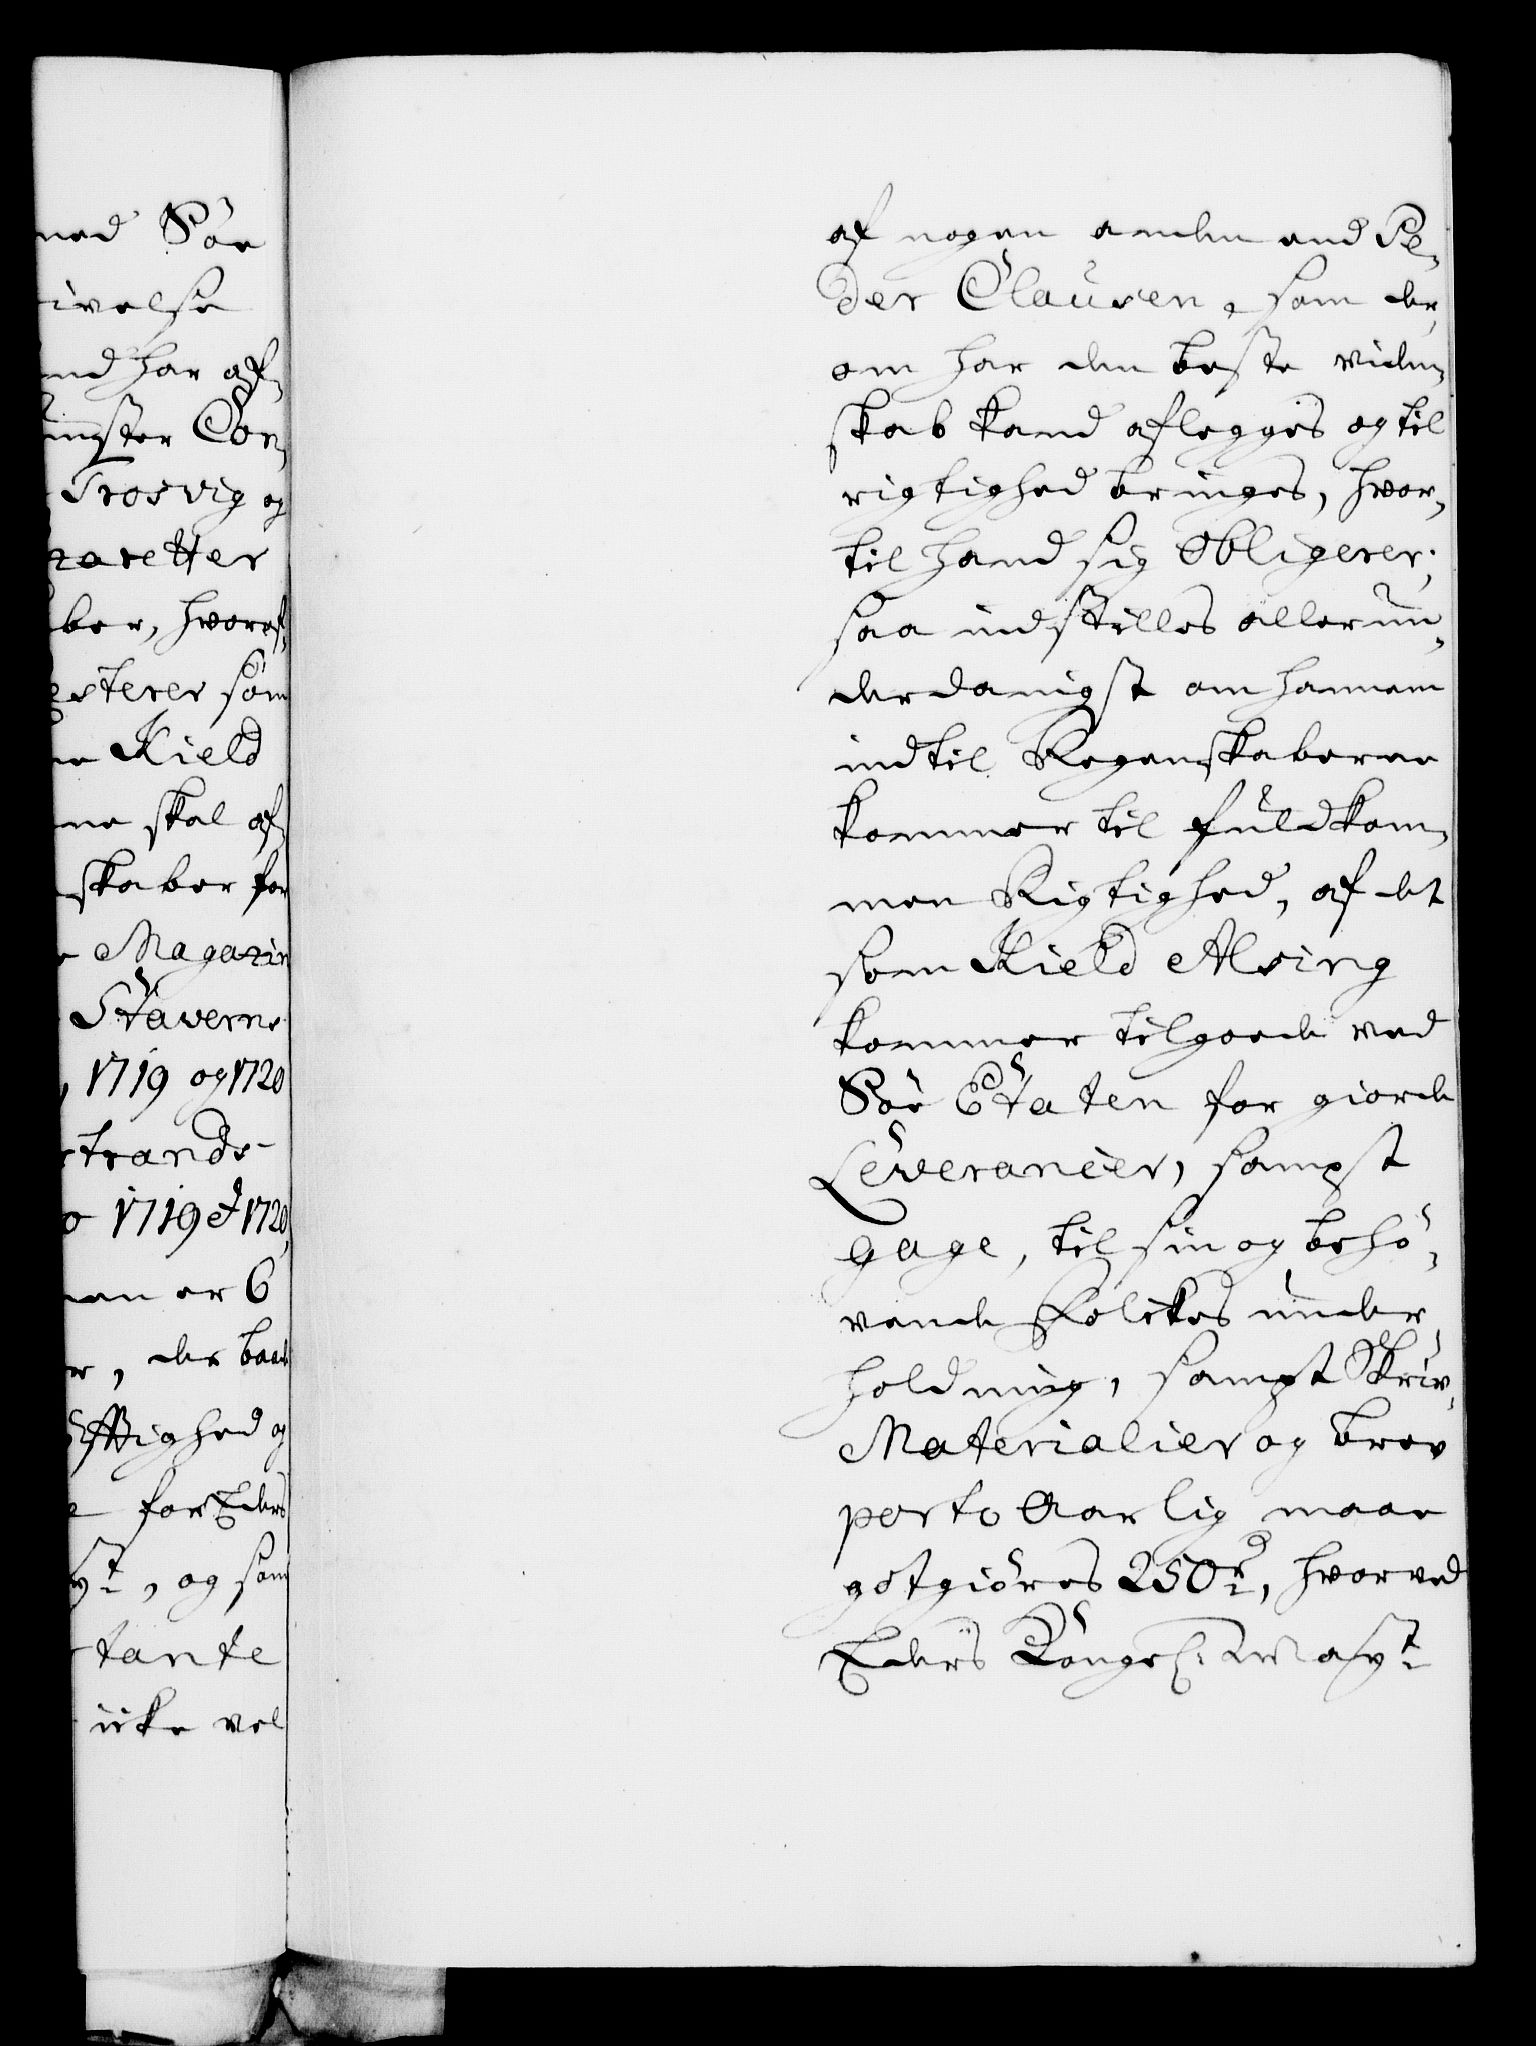 ned Söe
ivelse
nd har af-
ingster Con-
Trosvig og
zaretter
ber, hvoraf
esterer som
ne Kield
ne skal af-
skaber for
e Magazin
Staverns
, 1719 og 1720
strands-
o 1719 & 1720,
nen er 6
r, der baade
öfftighed og
e for Eders
yt, og som
tante
icke vel
af nogen anden end Pe-
der Clausen, som der-
om har den beste viden-
skab kand aflegges og til
rigtighed bringes, hvor-
til hand sig Obligerer;
saa indstilles allerun-
derdanigst om hannem
indtil Regenskaberne
kommer til fuldkom-
men Rigtighed, af det
som Kield Alsing
kommer tilgoede ved
Söe Etaten for giorde
Leverancier, sampt
gage, til sin og behö-
vende Folckes under-
holdning, sampt Skriv-
Materialier og brev
porto Aarlig maae
gotgiöres 250 rd, hvorved
Eders Kongel: Mayt